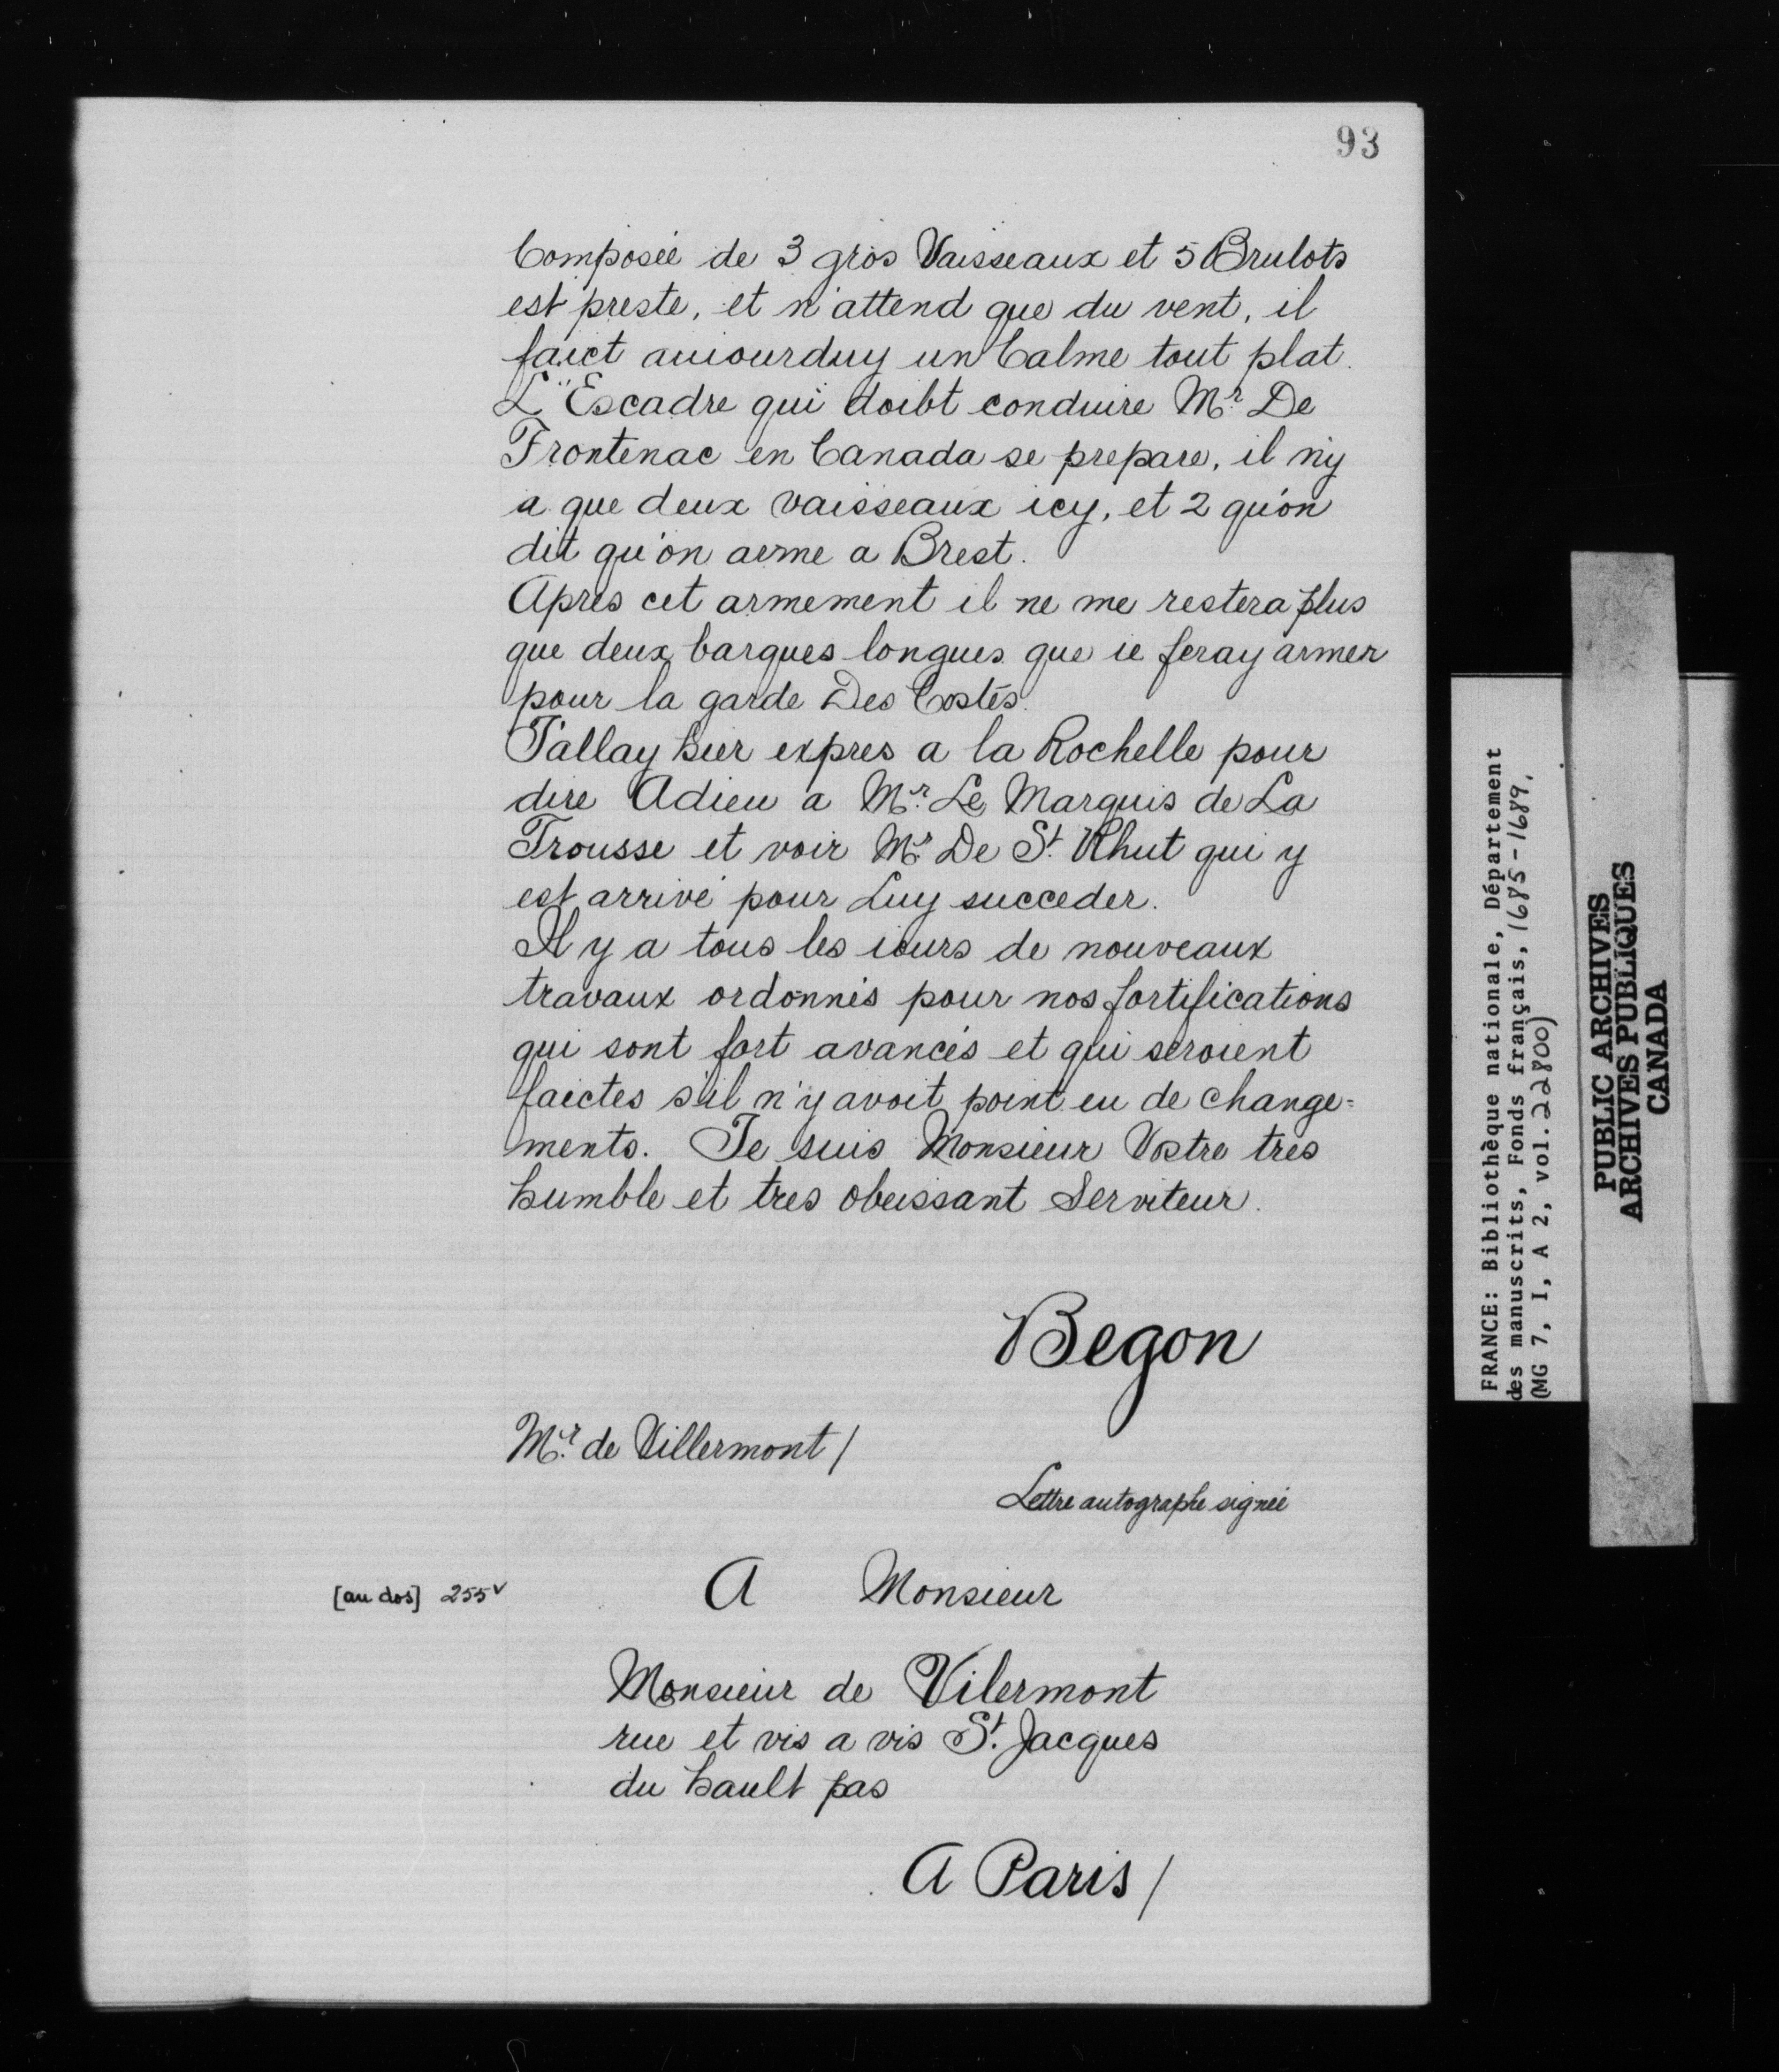 93
Composée de 3 gros Vaisseaux et 5 Brulots
est preste, et n'attend que du vent, il
faict auiourduy un Calme tout plat.
L'Escadre qui doibt conduire Mr. De
Frontenac en Canada se prepare, il n'y
a que deux vaisseaux icy, et 2 qu'on
dit qu'on arme a Brest.
Apres cet armement il ne me restera plus
que deux barques longues que ie feray armer
pour la garde Des Costés.
J'allay hier expres a la Rochelle pour
dire Adieu a Mr. Le Marquis de La
Trousse et voir Mr. De St. Rhut qui y
est arrivé pour Luy succeder.
Il y a tous les iours de nouveaux
travaux ordonnés pour nos fortifications
qui sont fort avancés et qui seroient
faictes s'il n'y avoit point eu de change=
ments. Je suis Monsieur Vostre tres
humble et tres obeissant Serviteur.
Begon
Mr. de Villermont /
Lettre autographe signée
[au dos] 255v
A Monsieur
Monsieur de Vilermont
rue et vis a vis St. Jacques
du hault pas
A Paris /
FRANCE: Bibliothèque nationale, Département
des manuscrits, Fonds français, 1685-1689.
(MG 7, I, A 2, vol. 22800)
PUBLIC ARCHIVES
ARCHIVES PUBLIQUES
CANADA